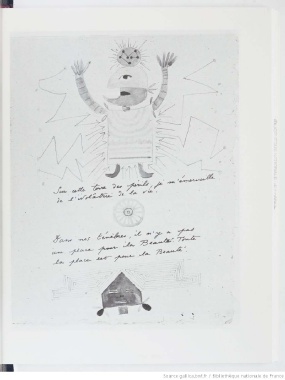 Sur cette terre des périls, je m'émerveille
de l'idolâtrie de la vie.
Dans nos ténèbres, il n'y a pas
une place pour la Beauté. Toute
la place est pour la Beauté.
Source gallica.bnf.fr / Bibliothèque nationale de France